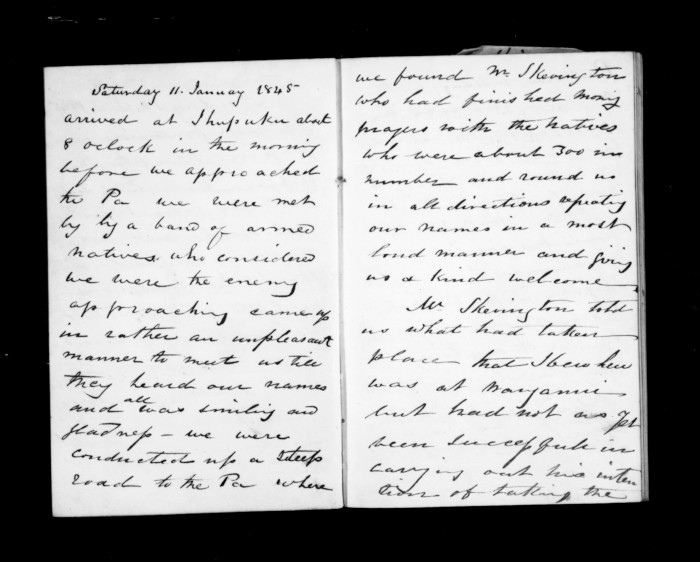 Saturday 11. January 1845
arrived at Ihupuku about
8 oclock in the morning
before we approached
the Pa we were met
by by a band of armed
natives who considered
we were the enemy
approaching came up
in rather an unpleasant
manner to meet us till
they heard our names
and all was smiling and
gladness - we were
conducted up a steep
road to the Pa where
we found Mr. Skevington
who had finished morng
prayers with the natives
who were about 300 in
number and round us
in all directions repeating
our names in a most
loud manner and giving
us a kind welcome
Mr Skevington told
us what had taken
place that
was at
but had not as yet
been successfull in
carying out his inten
tion of taking the